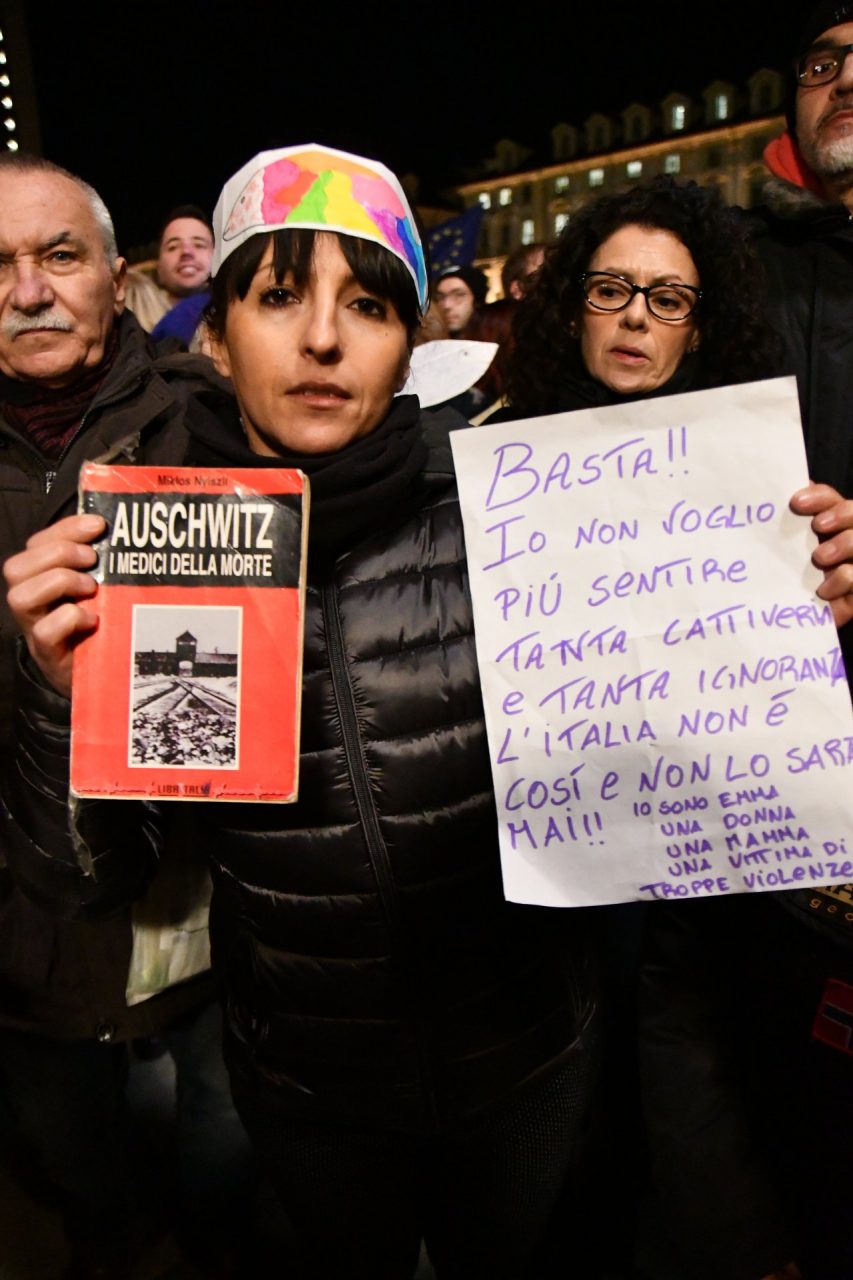 Miklos Nyiszli
AUSCHWITZ
I MEDICI DELLA MORTE
BASTA!!
IO NON VOGLIO
PIÚ SENTIRE
TANTA CATTIVERIA
E TANTA IGNORANZA
L'ITALIA NON É
COSÍ E NON LO SARÁ
MAI!!
IO SONO EMMA
UNA DONNA
UNA MAMMA
UNA VITTIMA DI
TROPPE VIOLENZE